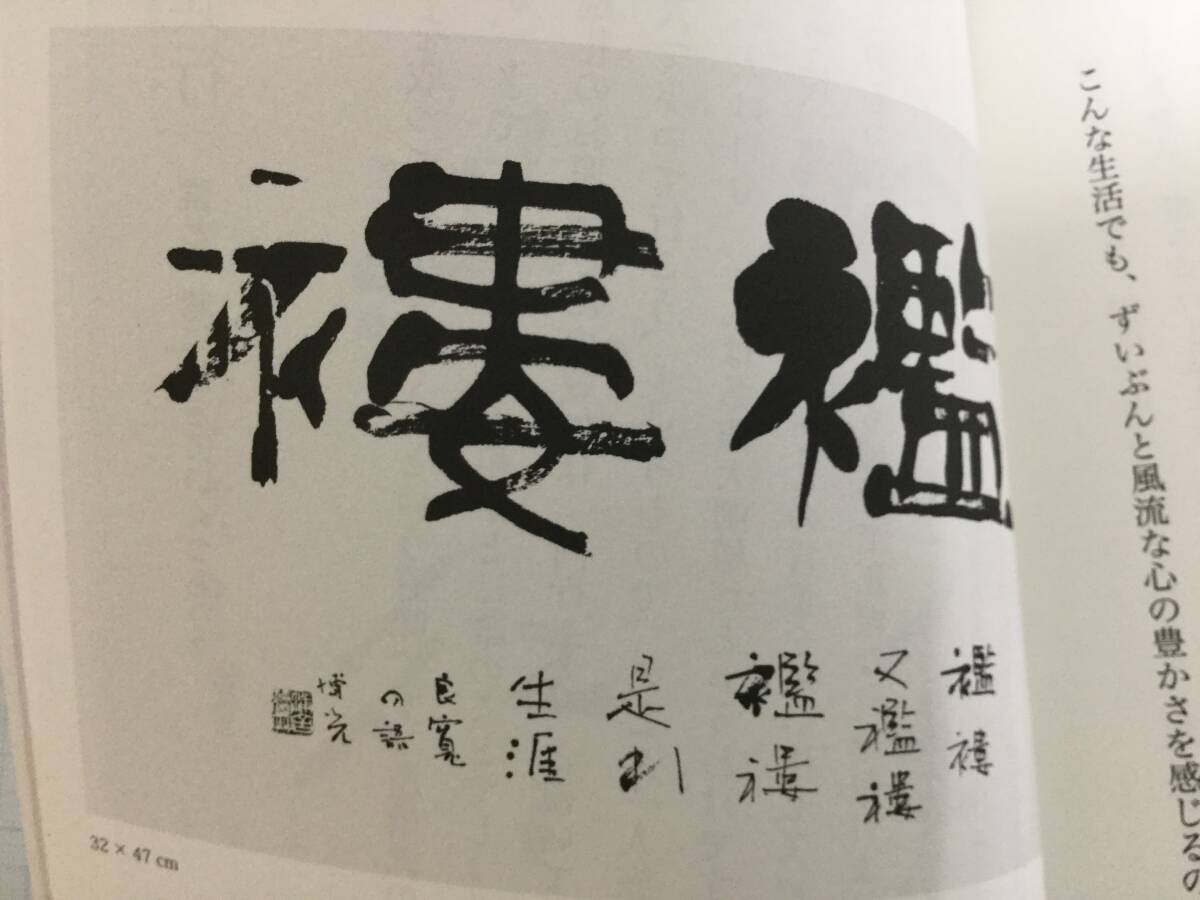 こんな生活でも、ずいぶんと風流な心の豊かさを感じるの
襤褸
襤褸
又襤褸
襤褸
是
生涯
良寛
の語
博光
32 × 47 cm